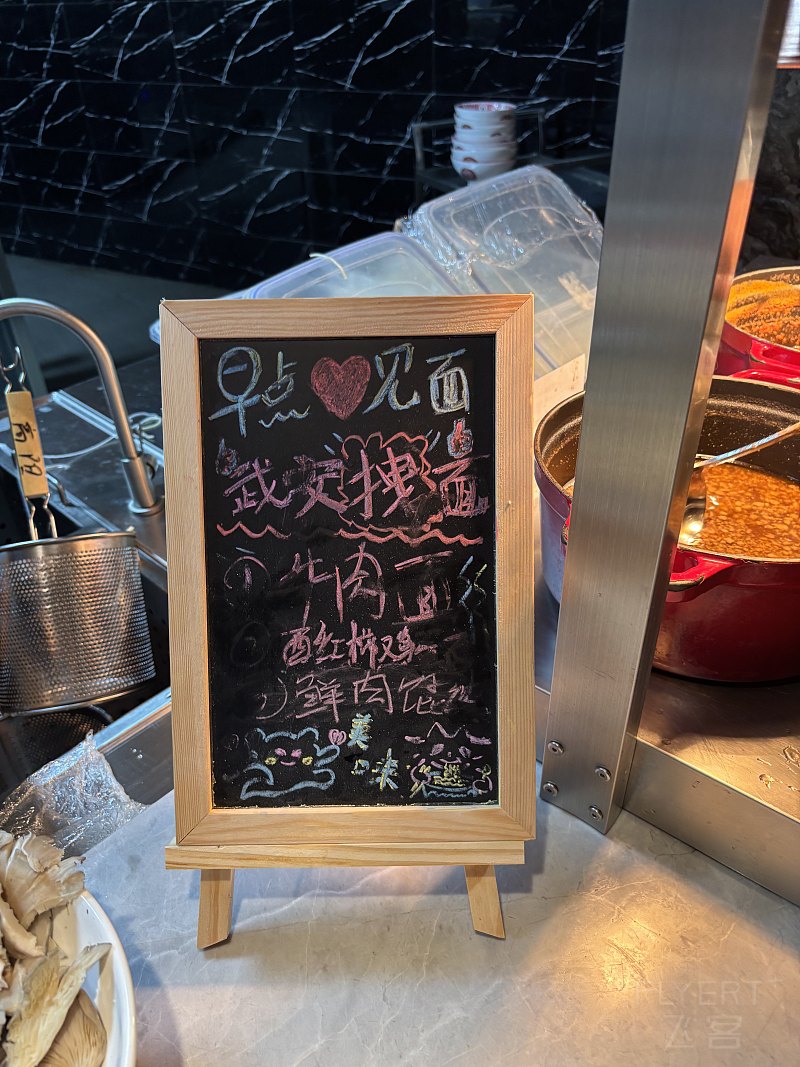 早点 见面
武安拽面
① 牛肉面
西红柿鸡
鲜肉馄
美
口味
FLYERT
飞客